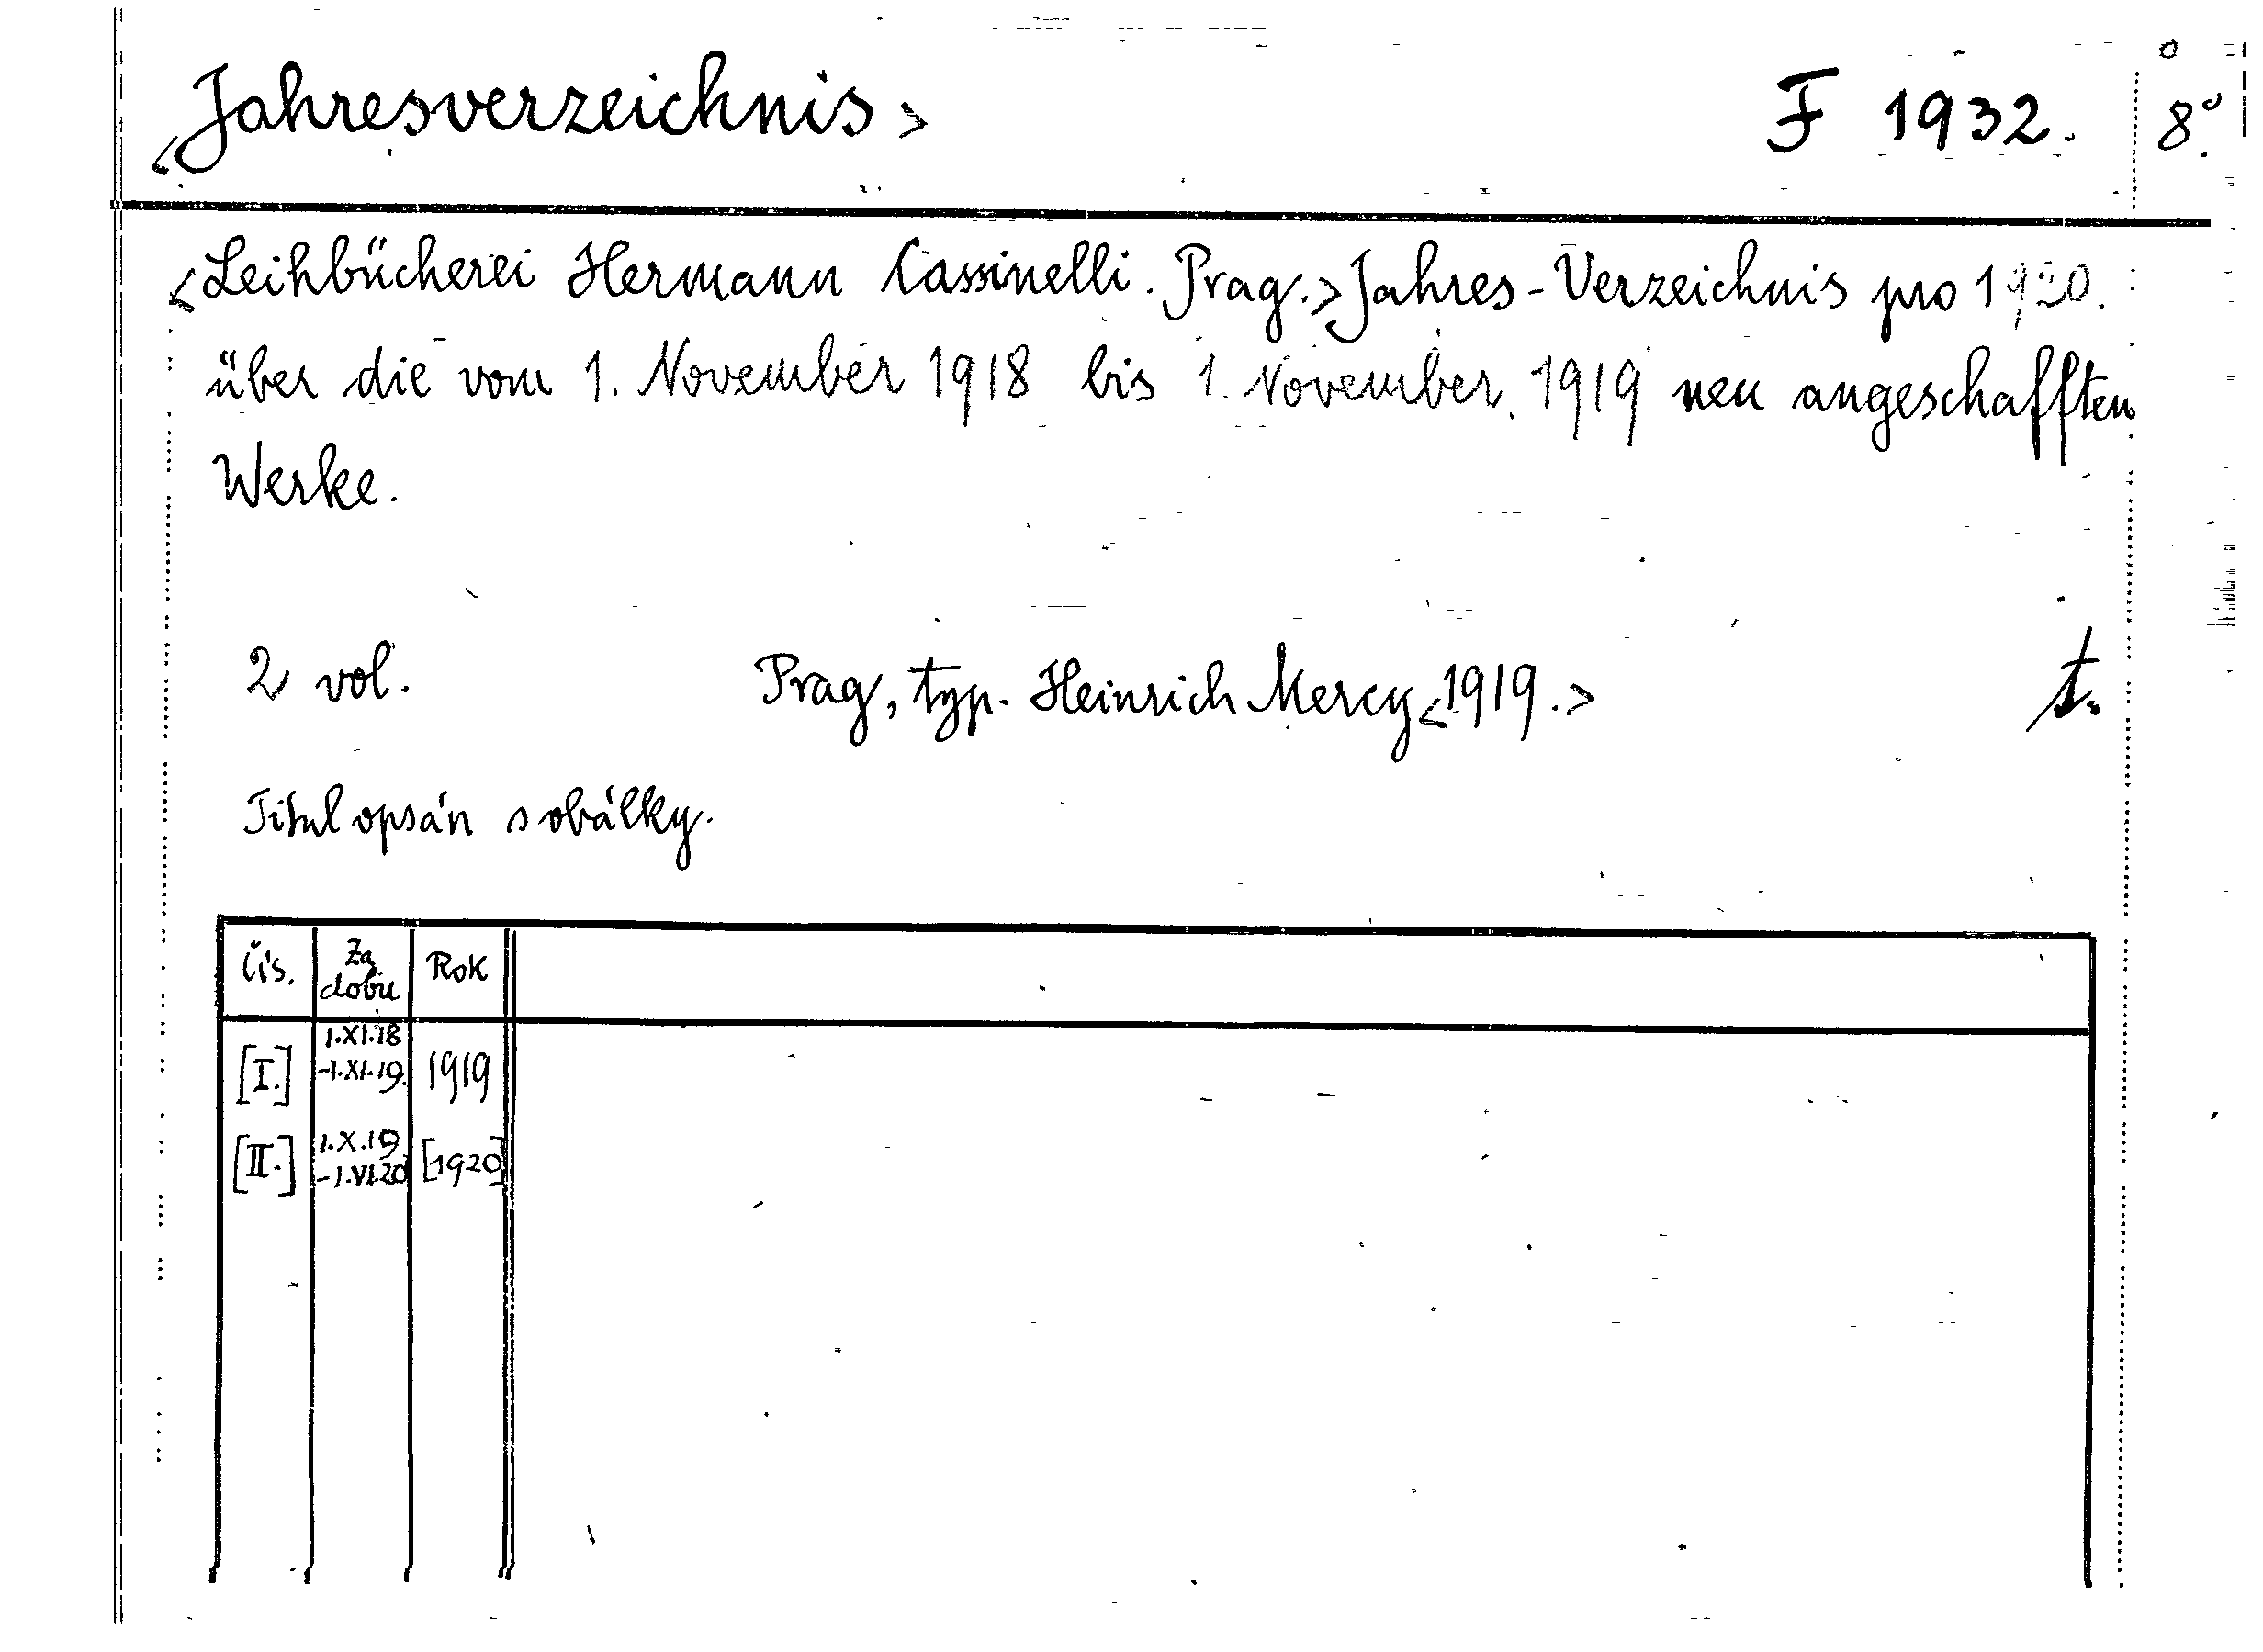 <Jahresverzeichnis> F 1932. 8°.
<Leihbücherei Hermann Cassinelli. Prag.> Jahres-Verzeichnis pro 1920.
über die vom 1. November 1918 bis 1. November 1919 neu angeschafften
Werke.
2 vol. Prag, typ. Heinrich Mercy <1919.> t.
Titul opsán s obálky.
Čís. Za dobu Rok
[I.] 1.XI.18 -1.XI.19. 1919
[II.] 1.X.19 -1.VI.20 [1920]